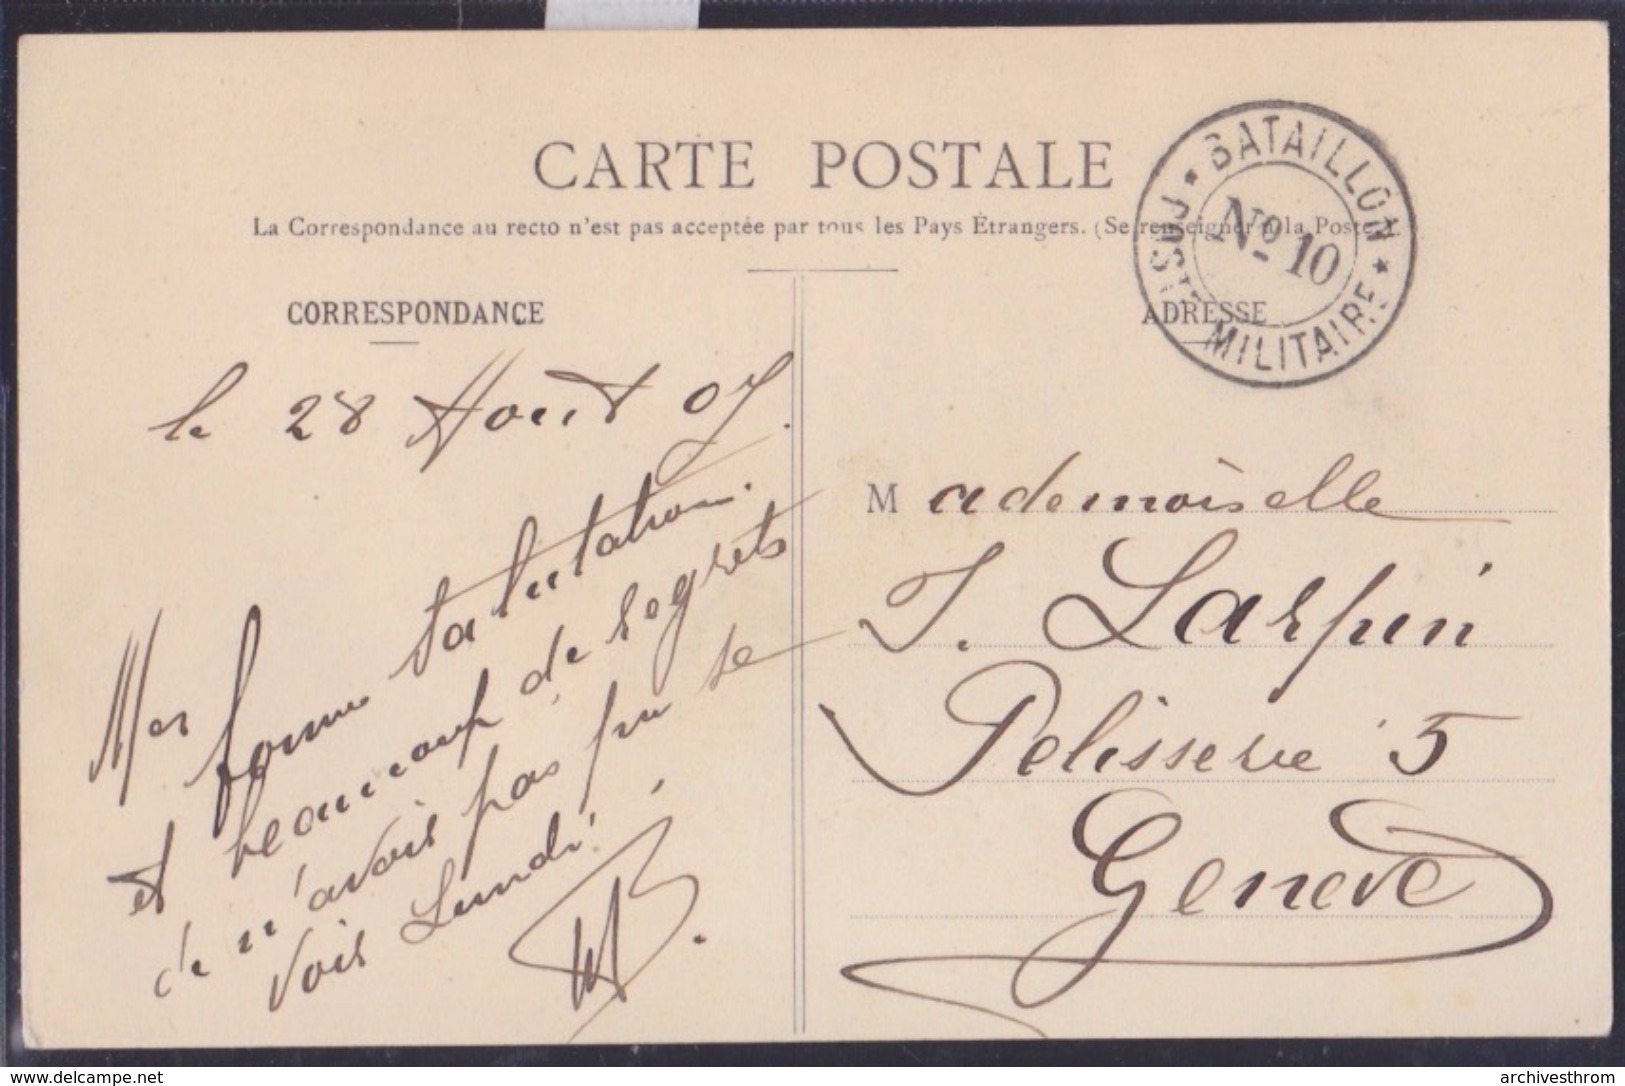 CARTE POSTALE
La Correspondance au recto n'est pas acceptée par tous les Pays Étrangers. (Se renseigner à la Poste.)
CORRESPONDANCE
ADRESSE
BATAILLON
No 10
MILITAIRE
le 28 Août 07.
Mes bonnes salutations.
et beaucoup de regrets
de n'avois pas pu te
vois Lundi.
Mademoiselle
J. Larpin
Pelisserie 5
Genève
www.delcampe.net
archivesthrom